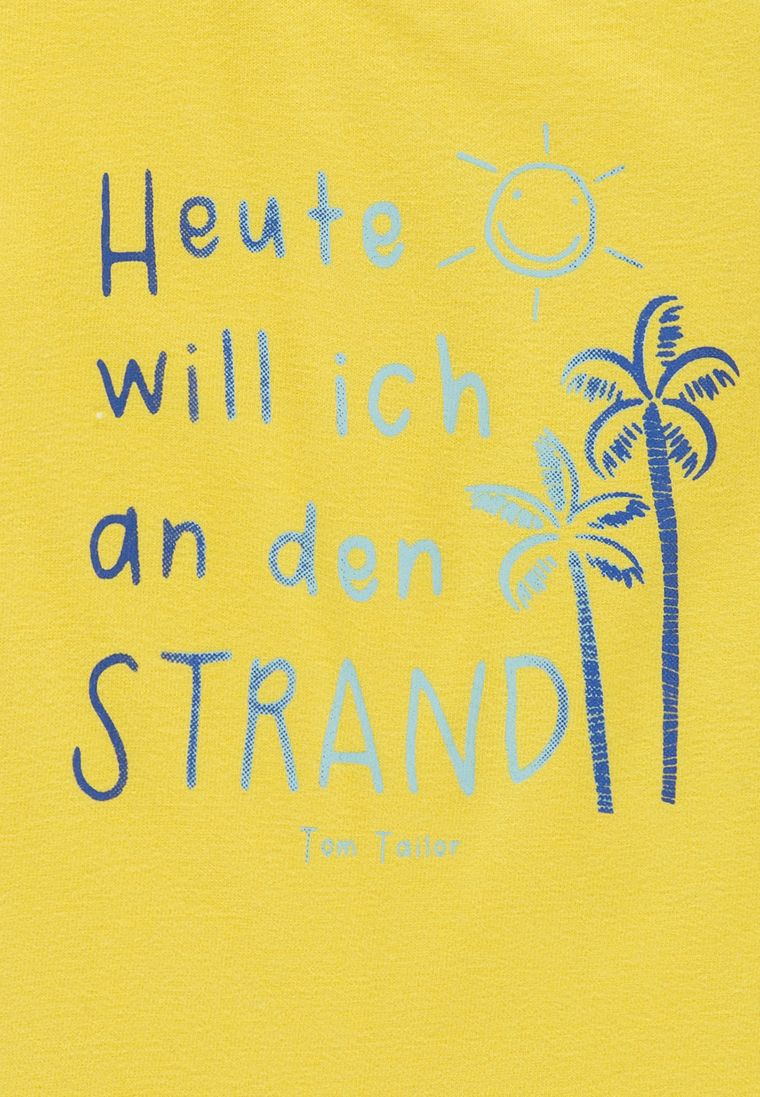 Heute
will ich
an den
STRAND
Tom Tailor